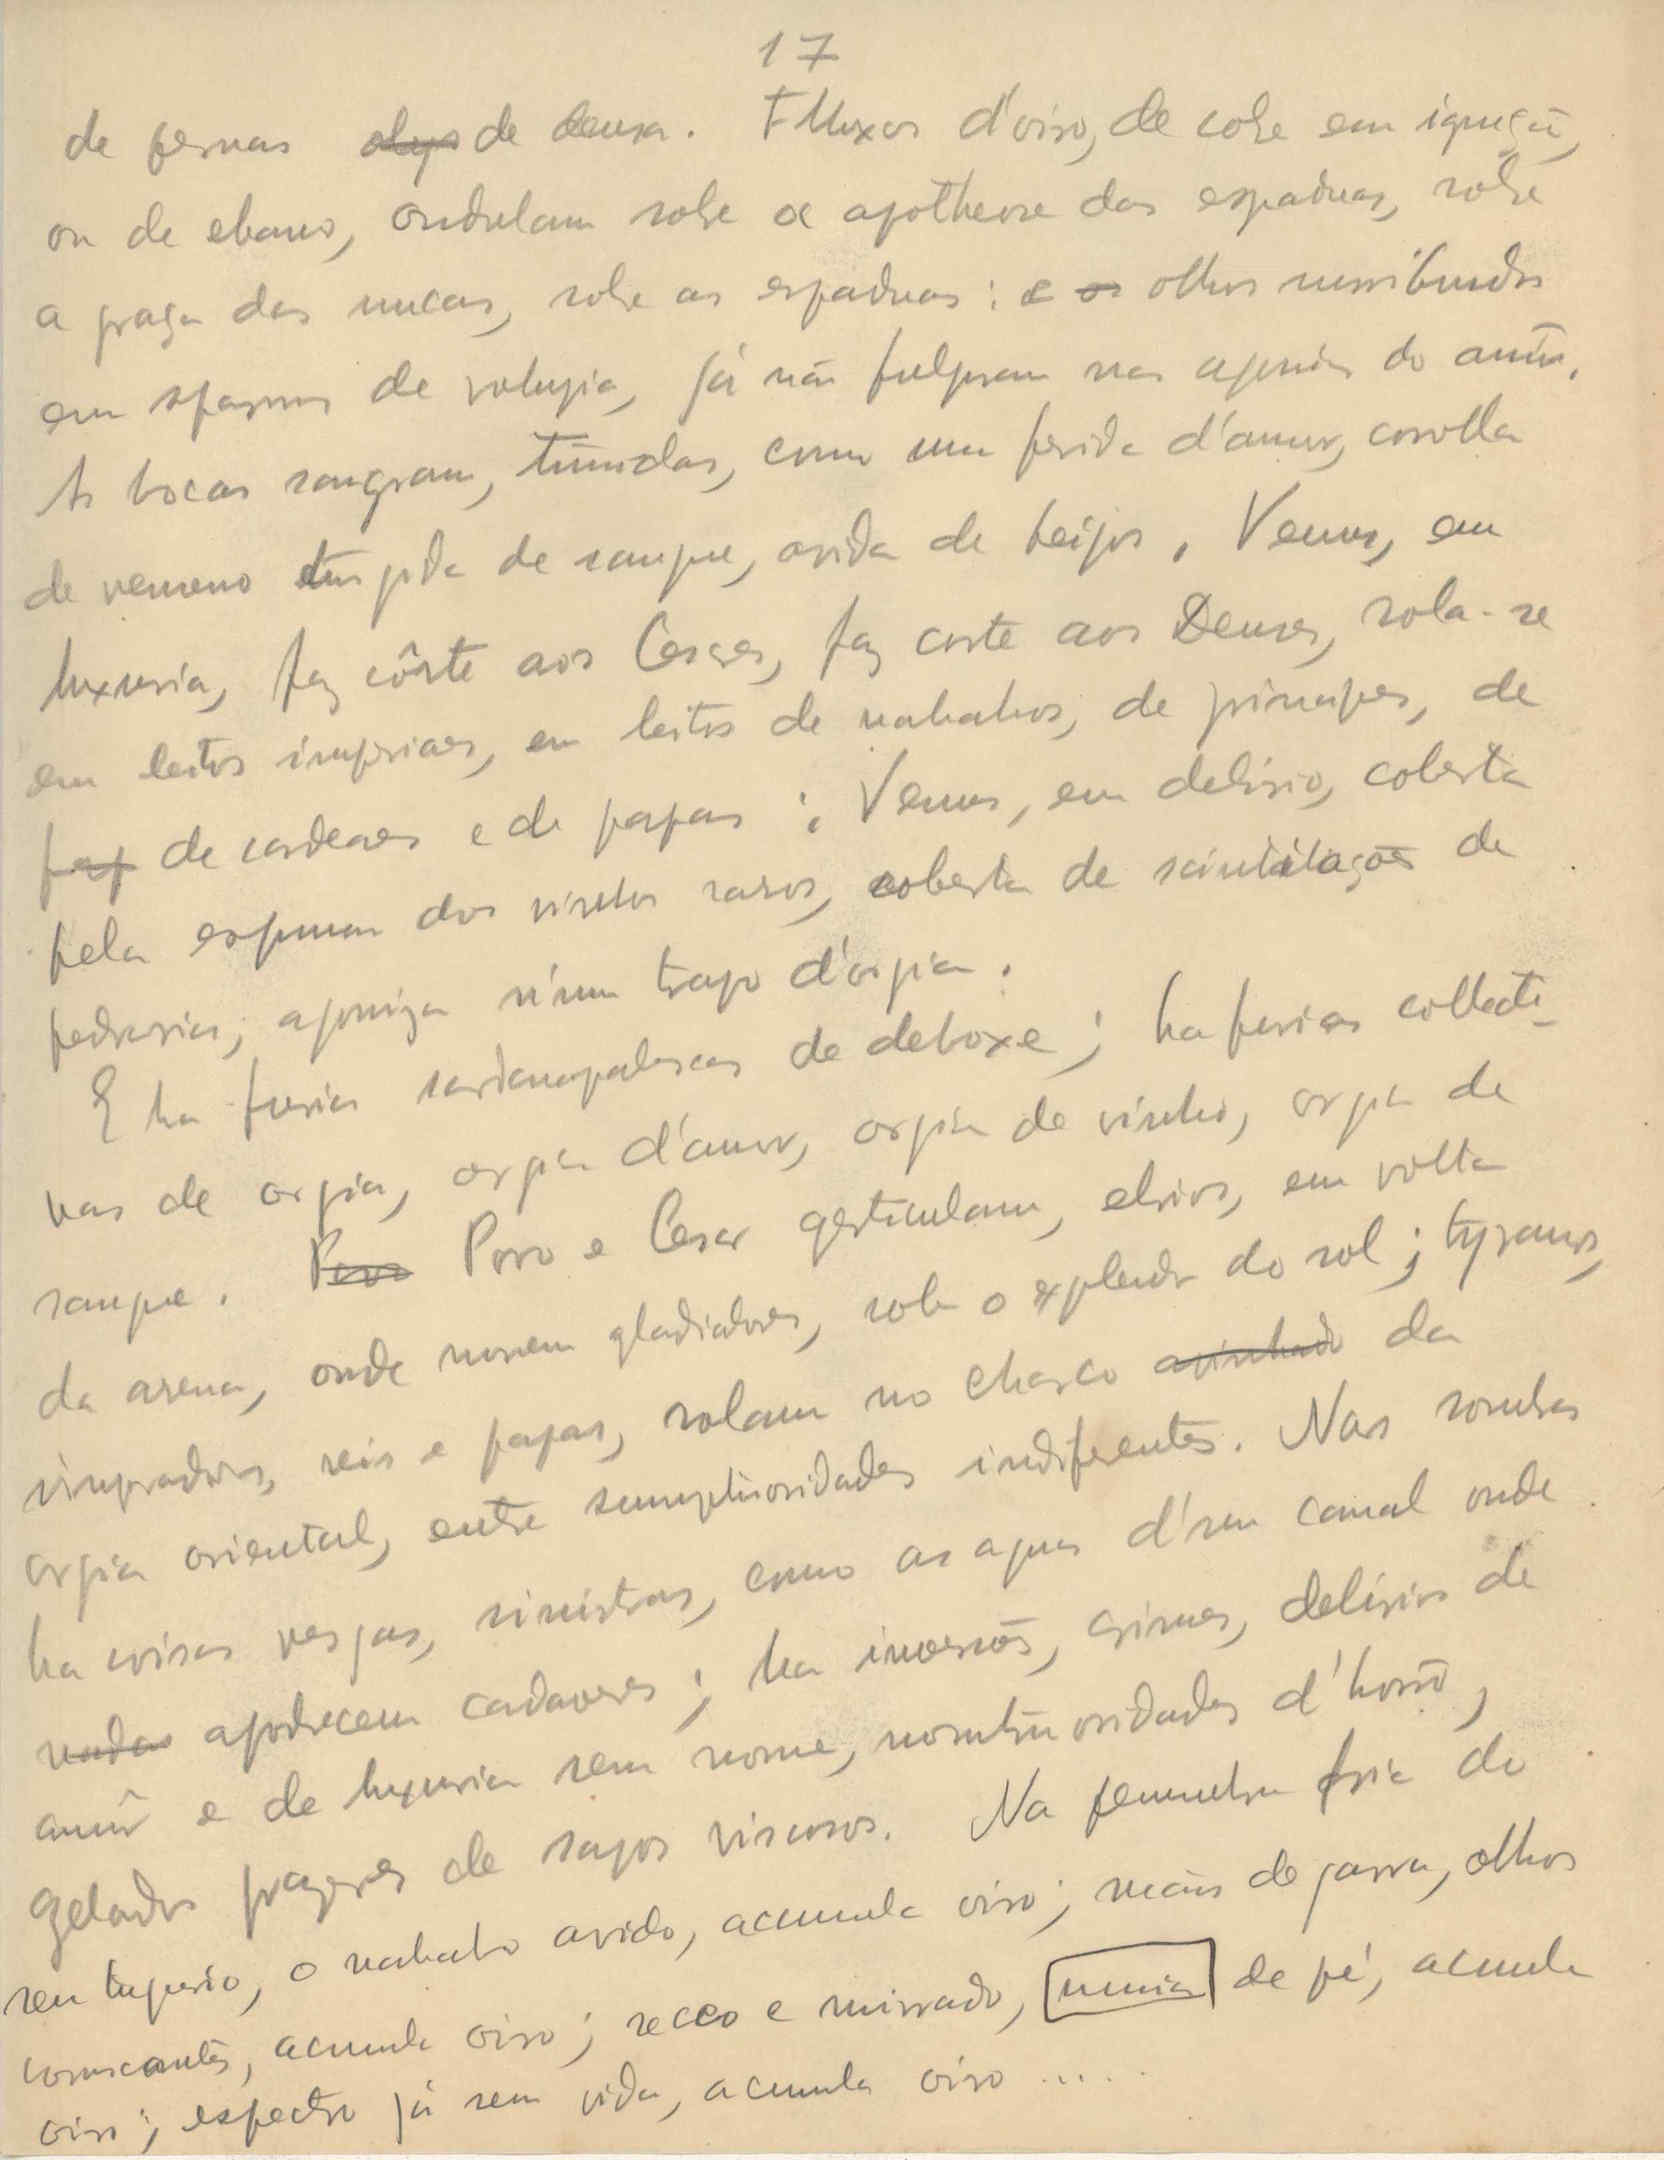 17
de pernas de deusa. Fluxos d'oiro, de cobre em ignição,
ou de ebano, ondulam sobre a apotheose das espaduas, sobre
a graça das nucas, sobre as espaduas: e os olhos moribundos
em spasmos de volupia, já não fulguram nas agonias do amôr.
As bocas sangram, tumidas, como uma ferida d'amor, corolla
de veneno turgida de sangue, avida de beijos. Venus, em
luxuria, faz côrte aos Cesares, faz corte aos Deuses, rola-se
em leitos imperiaes, em leitos de nababos, de principes, de
de cardeaes e de papas; Venus, em delirio, coberta
pela espuma dos vinhos raros, coberta de scintilações de
pedrarias, agoniza n'um trapo d'orgia.
E ha furias sardanapalescas de deboxe; ha furias collecti-
vas de orgia, orgia d'amor, orgia de vinho, orgia de
sangue. Povo Povo e Cesar gesticulam, ebrios, em volta
da arena, onde morrem gladiadores, sob o explendor do sol; tyranos,
imperadores, reis e papas, rolam no charco avinhado da
orgia oriental, entre sumptuosidades indiferentes. Nas sombras
ha coisas vesgas, sinistras, como as aguas d'um canal onde
nadam apodrecem cadaveres; ha inversões, crimes, delirios de
amôr e de luxuria sem nome, monstruosidades d'horrôr,
gelados prazeres de sapos viscosos. Na penumbra fria do
seu tugurio, o nababo avido, acumula oiro; mãos de garra, olhos
coruscantes, acumula oiro; secco e mirrado, mumia de pé, acumula
oiro; espectro já sem vida, acumula oiro .....